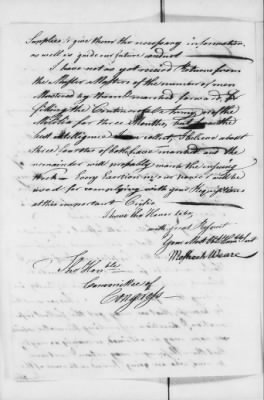 Supplies & give them the necessary information
as well as guide our future conduct
I have not as yet received Returns from
the Muster Masters of the number of men
Mustered by them & marched forward, for
filling the Continental Army, or of the
Militia for three Months, but
last intelligence I believe about
three fourths of both have marched and the
remainder will probably march the ensuing
Week — Every Exertion in our power will be
used for complying with your Requisitions
at this important Crisis
I have the Honor to be,
with great Respect
Your Most Obt Humb Servt
Meshech Weare
The Honble
Committee of
Congress